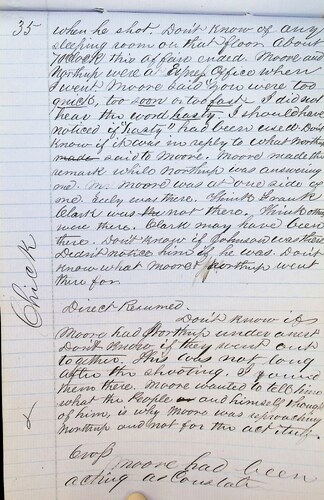 35
when he shot. Don't know of any
sleeping room on that floor. About
7 oclock this affair ended. Moore and
Northrup were at Office when
I went Moore said you were too
quick, too soon or too fast. I did not
hear the word hasty. I should have
noticed if "hasty" had been used. Don't
know if it was in reply to what Northrup
made said to Moore. Moore made this
remark while Northrup was answering
me. Mr. Moore was at one side of
me. was there. Think Frank
Clark was the not there. Think
were there. Clark may have been
there. Don't know if Johnson was there
Didn't notice him if he was. Don't
know what Moore & Northrup went
there for.
Direct Resumed.
Don't know if
Moore had Northrup under arrest
Don't know if they went out
together. This was not long
after the shooting. I found
them there. Moore wanted to tell him
what the People and himself thought
of him, is why Moore was reproaching
Northrup and not for the act itself.
Cross
Moore had been
acting as Constable
Chick